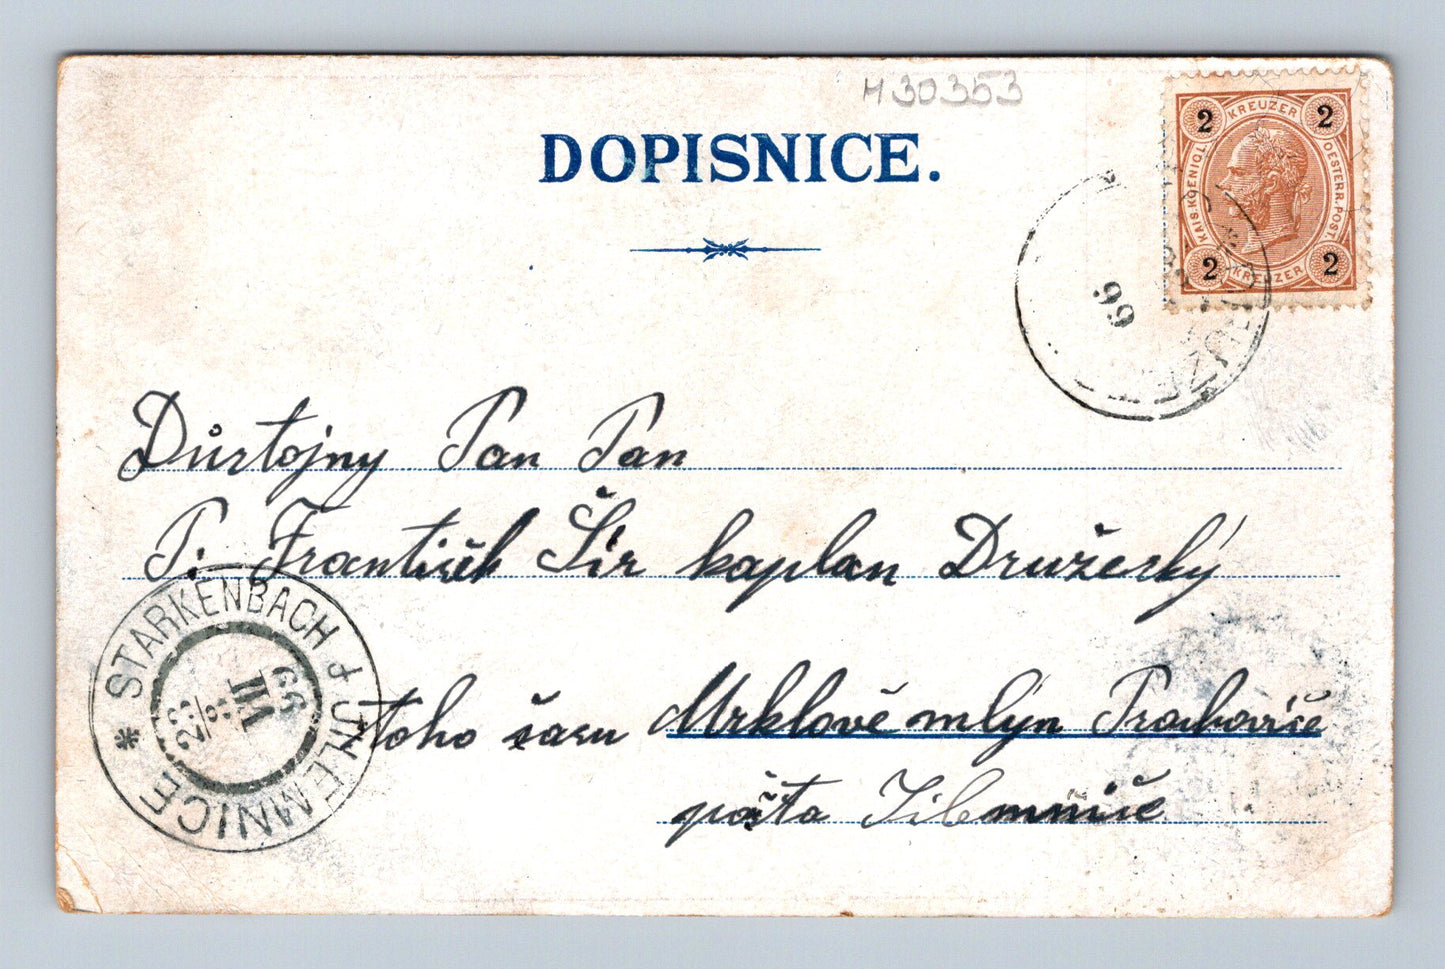 H30353
DOPISNICE.
2 KREUZER 2
KAIS. KOENIGL. OESTERR. POST.
2 KREUZER 2
99
Důstojný Pan Pan
P: František Šír kaplan Družecký
toho času Mrklové mlýn Prachovice
pošta Jilemnice
STARKENBACH JILEMNICE
23/8
99